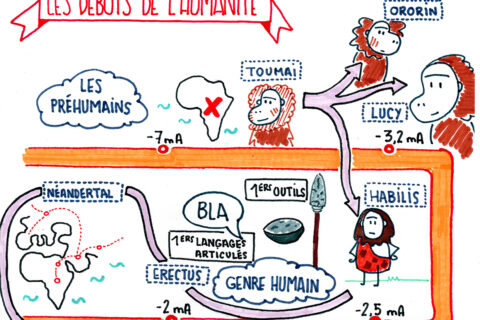 LES DÉBUTS DE L'HUMANITÉ
ORORIN
TOUMAI
LES
PRÉHUMAINS
LUCY
-7 MA
-3,2 MA
NÉANDERTAL
1ERS OUTILS
HABILIS
BLA
1ERS LANGAGES
ARTICULÉS
ERECTUS
GENRE HUMAIN
-2 MA
-2,5 MA